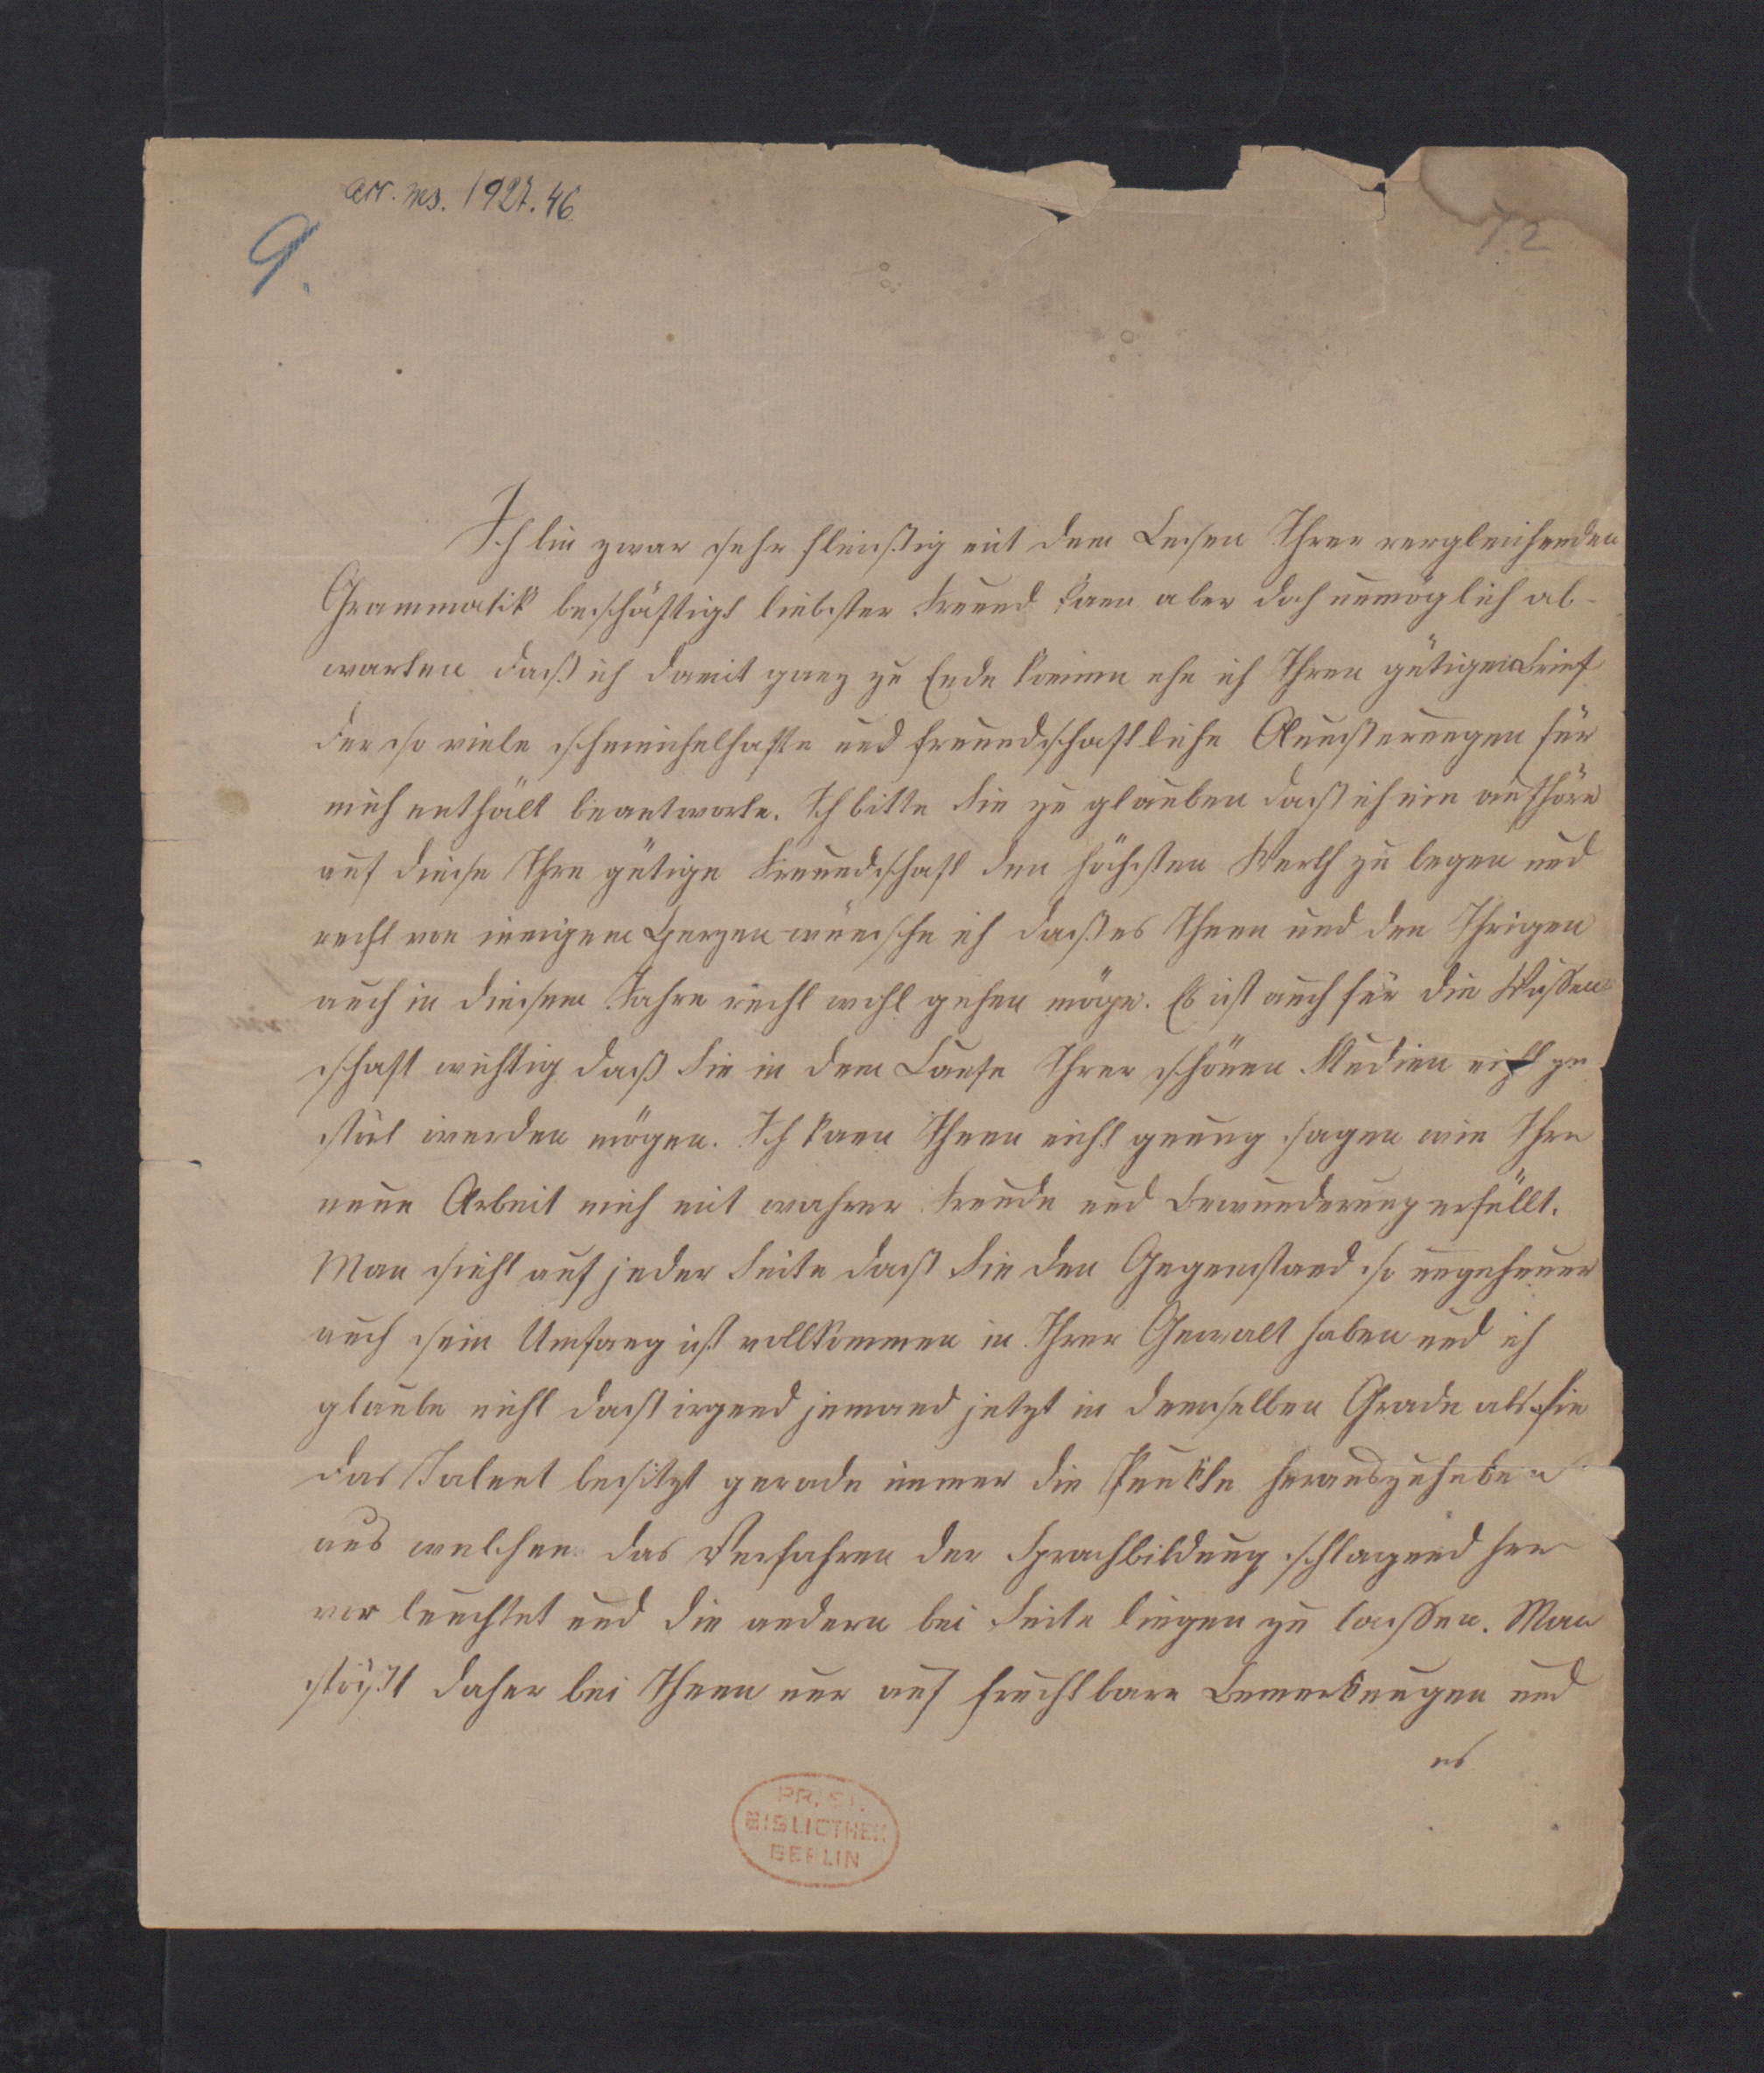 acc. ms. 1927. 46
9.
72
Ich bin zwar sehr fleissig mit dem Lesen Ihrer vergleichenden
Grammatik beschäftigt liebster Freund kann aber doch unmöglich ab-
warten dass ich damit ganz zu Ende komme ehe ich Ihren gütigen Brief
der so viele schmeichelhafte und freundschaftliche Aeusserungen für
mich enthält beantworte. Ich bitte Sie zu glauben dass ich nie aufhöre
auf diese Ihre gütige Freundschaft den höchsten Werth zu legen und
recht von innigem Herzen wünsche ich dass es Ihnen und den Ihrigen
auch in diesem Jahre recht wohl gehen möge. Es ist auch für die Wissen
schaft wichtig dass Sie in dem Laufe Ihrer schönen Studien nicht ge
stört werden mögen. Ich kann Ihnen nicht genung sagen wie Ihre
neue Arbeit mich mit wahrer Freude und Bewunderung erfüllt.
Man sieht auf jeder Seite dass Sie den Gegenstand so ungeheuer
auch sein Umfang ist vollkommen in Ihrer Gewalt haben und ich
glaube nicht dass irgend jemand jetzt in demselben Grade als Sie
das Talent besitzt gerade immer die Punkte herauszuheben
aus welchen das Verfahren der Sprachbildung schlagend her
vor leuchtet und die andern bei Seite liegen zu lassen. Man
stösst daher bei Ihnen nur auf fruchtbare Bemerkungen und
es
PR. ST.
BIBLIOTHEK
BERLIN